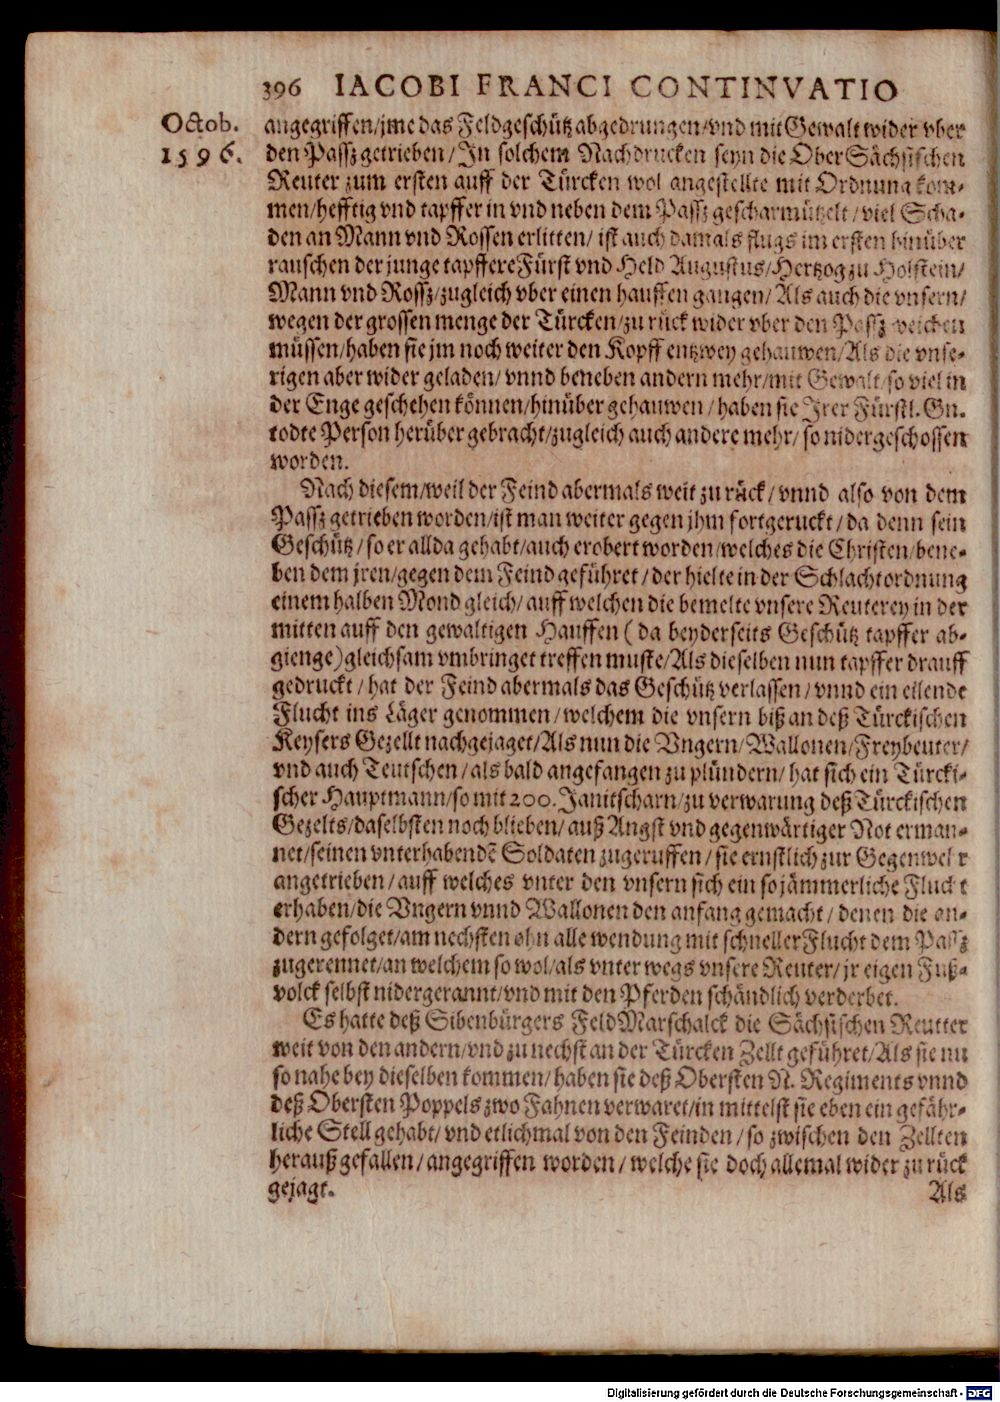 396 IACOBI FRANCI CONTINVATIO
Octob.
1596.
angegriffen/jme das Feldgeschütz abgedrungen/vnd mit Gewalt wider vber
den Passz getrieben/In solchem Nachdrucken seyn die Ober Sächsischen
Reuter zum ersten auff der Türcken wol angestellte mit Ordnung kom-
men/hefftig vnd tapffer in vnd neben dem Passz gescharmützelt/viel Scha-
den an Mann vnd Rossen erlitten/ist auch damals flugs im ersten hinüber
rauschen der junge tapffere Fürst vnd Held Augustus/Hertzog zu Holstein/
Mann vnd Rossz/zugleich vber einen hauffen gangen/Als auch die vnsern/
wegen der grossen menge der Türcken/zu rück wider vber den Passz weichen
müssen/haben sie jm noch weiter den Kopff entzwey gehauwen/Als die vnse-
rigen aber wider geladen/vnnd beneben andern mehr/mit Gewalt/so viel in
der Enge geschehen können/hinüber gehauwen/haben sie Irer Fürstl. Gn.
todte Person herüber gebracht/zugleich auch andere mehr/so nidergeschossen
worden.
Nach diesem/weil der Feind abermals weit zu rück/vnnd also von dem
Passz getrieben worden/ist man weiter gegen jhm fortgeruckt/da denn sein
Geschütz/so er allda gehabt/auch erobert worden/welches die Christen/bene-
ben dem jren/gegen dem Feind geführet/der hielte in der Schlachtordnung
einem halben Mond gleich/auff welchen die bemelte vnsere Reuterey in der
mitten auff den gewaltigen Hauffen (da beyderseits Geschütz tapffer ab-
gienge) gleichsam vmbringet treffen muste/Als dieselben nun tapffer drauff
gedruckt/hat der Feind abermals das Geschütz verlassen/vnnd ein eilende
Flucht ins Läger genommen/welchem die vnsern biß an deß Türckischen
Keysers Gezellt nachgejaget/Als nun die Vngern/Wallonen/Freybeuter/
vnd auch Teutschen/als bald angefangen zu plündern/hat sich ein Türcki-
scher Hauptmann/so mit 200. Janitscharn/zu verwarung deß Türckischen
Gezelts/daselbsten noch blieben/auß Angst vnd gegenwärtiger Not erman-
net/seinen vnterhabendẽ Soldaten zugeruffen/sie ernstlich zur Gegenwehr
angetrieben/auff welches vnter den vnsern sich ein so jämmerliche Flucht
erhaben/die Vngern vnnd Wallonen den anfang gemacht/denen die an-
dern gefolget/am nechsten ohn alle wendung mit schneller Flucht dem Passz
zugerennet/an welchem so wol/als vnter wegs vnsere Reuter/jr eigen Fuß-
volck selbst nidergerannt/vnd mit den Pferden schändlich verderbet.
Es hatte deß Sibenbürgers FeldMarschalck die Sächsischen Reutter
weit von den andern/vnd zu nechst an der Türcken Zellt geführet/Als sie nu
so nahe bey dieselben kommen/haben sie deß Obersten N. Regiments vnnd
deß Obersten Poppels zwo Fahnen verwaret/in mittelst sie eben ein gefähr-
liche Stell gehabt/vnd etlichmal von den Feinden/so zwischen den Zellten
herauß gefallen/angegriffen worden/welche sie doch allemal wider zu rück
gejagt.
Als
Digitalisierung gefördert durch die Deutsche Forschungsgemeinschaft - DFG